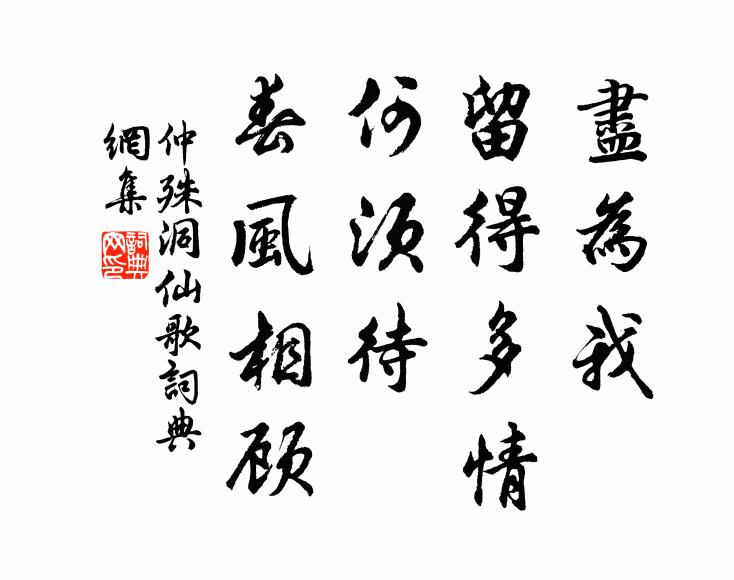 盡為我
留得多情
何須待
春風相顾
仲殊洞仙歌詞典
網集
詞典
网印